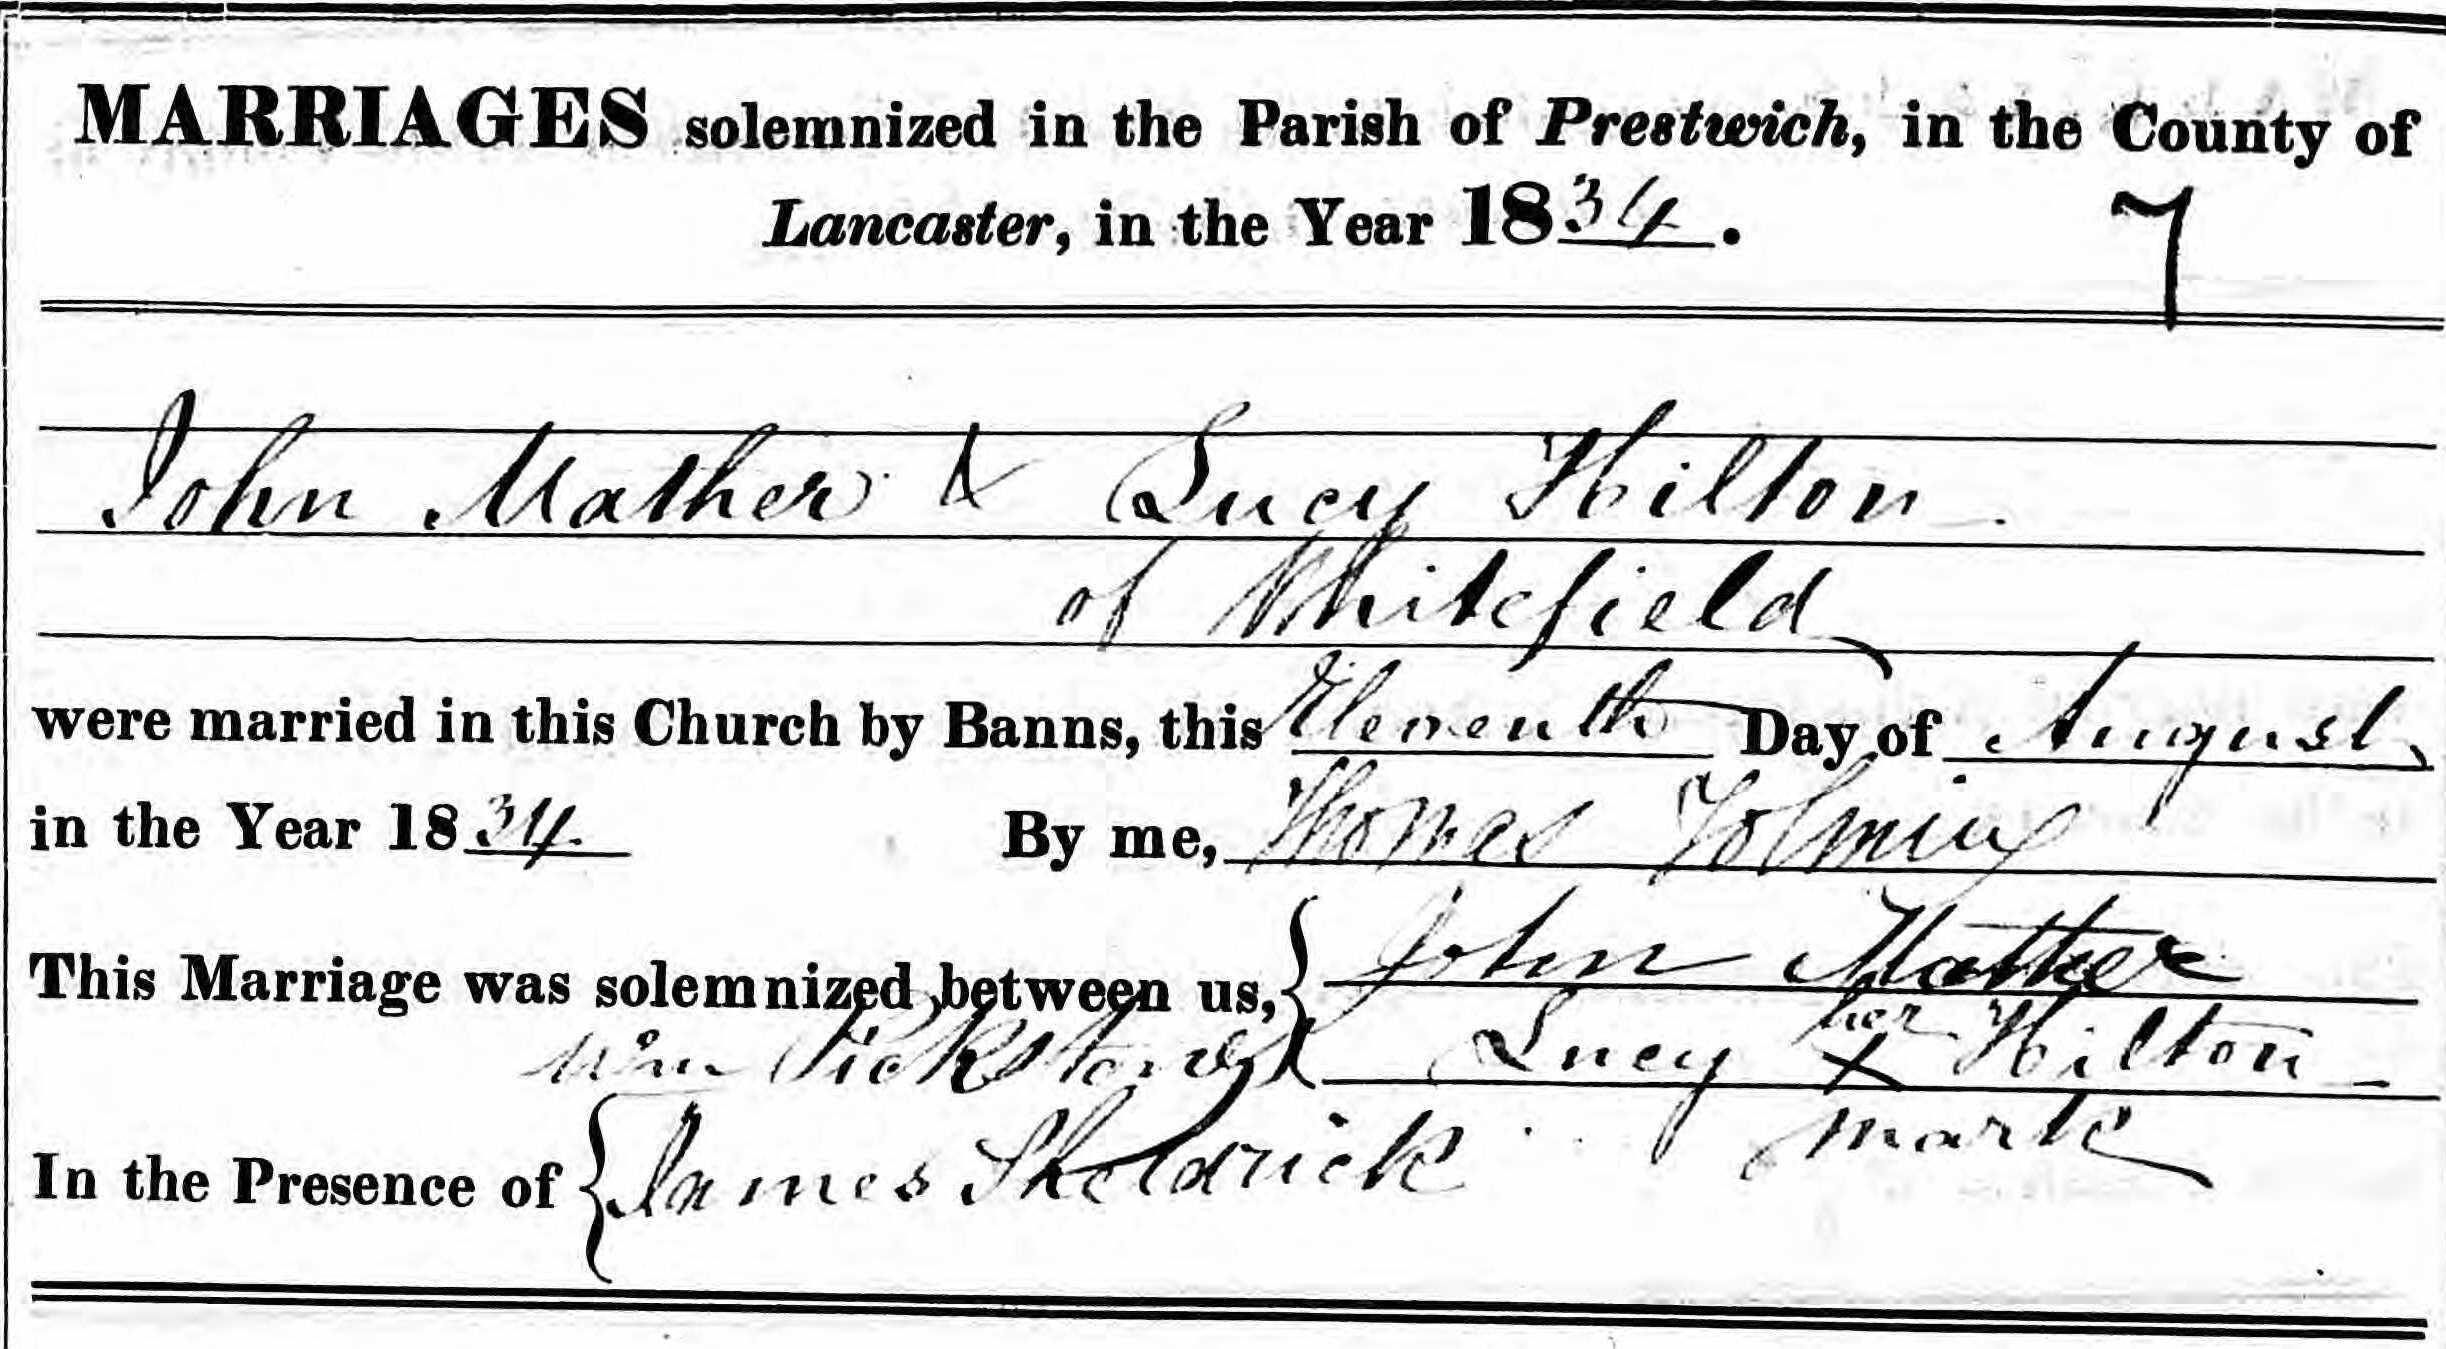 MARRIAGES solemnized in the Parish of Prestwich, in the County of
Lancaster, in the Year 1834.
7
John Mather & Lucy Hilton
of Whitefield
were married in this Church by Banns, this Eleventh Day of August
in the Year 1834. By me, Thomas
This Marriage was solemnized between us, John Mather
her
Wm Lucy X Hilton
mark
In the Presence of James Sheldrick